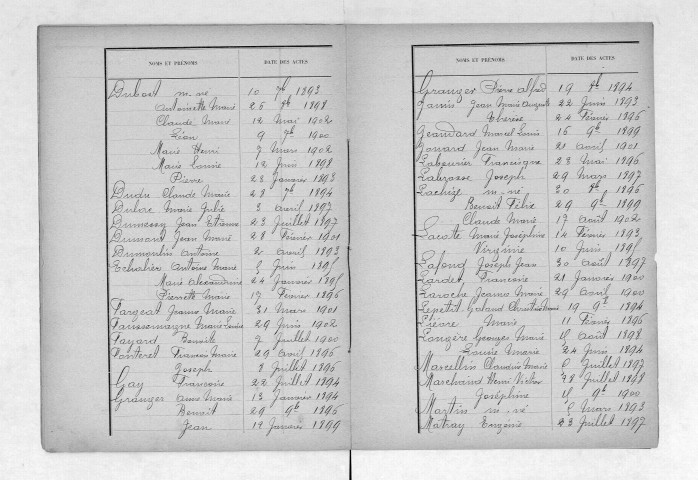 NOMS ET PRÉNOMS DATE DES ACTES
Dubost m. né 10 7b 1893
Antoinette Marie 25 8b 1898
Claude Marie 12 Mai 1902
Léon 9 7b 1900
Marie Henri 7 Mars 1902
Marie Louise 12 Juin 1898
Pierre 28 Janvier 1893
Dudu Claude Marie 28 7b 1894
Marie Julie 3 avril 1897
Jean Etienne 23 Juillet 1897
Dumont Jean Marie 28 Février 1901
Dumoulin Antoine 2 avril 1893
Echallier Antoine Marie Juin 1895
Marie Alexandrine 24 Janvier 1895
Pierrette Marie 17 Février 1896
Fargeat Jeanne Marie 31 Mars 1901
Marie Louise 29 Juin 1902
Fayard Benoite 7 Juillet 1900
Fonteret Francis Marie 29 avril 1896
Joseph 8 Juillet 1896
Gay Francoise 22 Juillet 1894
Granger Anne Marie 13 Janvier 1894
Benoit 29 9b 1896
Jean 19 Janvier 1899
NOMS ET PRÉNOMS DATE DES ACTES
Granger Pierre Alfred 19 8b 1894
Jamis Jean Marie Auguste 22 Juin 1893
Thérèse 24 Février 1896
Marcel Louis 16 9b 1899
Jonard Jean Marie 21 avril 1901
Labourier Francisque 23 Mai 1896
Labrosse Joseph 29 Mars 1897
m. né 30 8b 1896
Benoit Félix 29 9b 1899
Claude Marie 17 Août 1902
Lacote Marie Joséphine 14 Février 1893
Virginie 10 Juin 1895
Lafond Joseph Jean 30 Août 1897
Lardet Francoise 21 Janvier 1900
Laroche Jeanne Marie 29 avril 1900
Lepetit 19 9b 1894
Lièvre Marie 11 Février 1896
Longère Georges Marie Août 1898
Louise Marie 24 Juin 1894
Marcellin Claudius Marie Juillet 1897
Marchand Henri Victor Juillet 1898
Joséphine 9b 1900
Martin m. né Mars 1893
Matray Eugénie 23 Juillet 1897